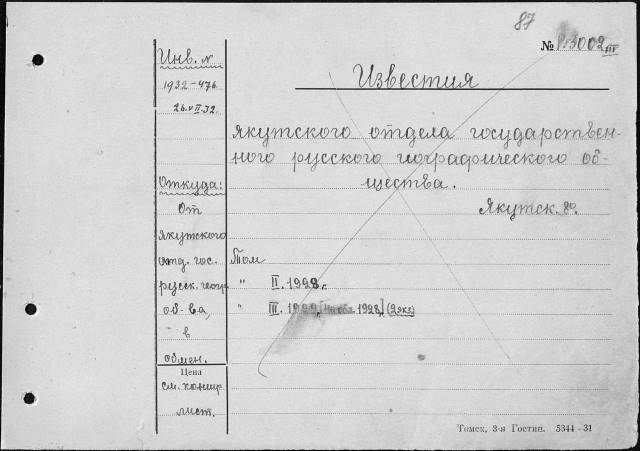 87
№ P.3002 III
Известия
Инв. №
1932-476.
26.VII.32.
якутского отдела государствен-
ного русского географического об-
щества.
Якутск. 8º.
Откуда:
От
якутского
отд. гос.
русск. геогр
об-ва,
в
обмен.
Цена
см. конир
лист.
Том
" II. 1928 г.
" III. 1929 [На обл. 1928] (2 экз)
Томск, 3-я Гостип. 5344-31